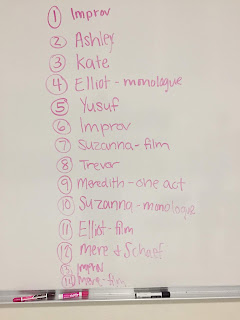 1 Improv
2 Ashley
3 Kate
4 Elliot - monologue
5 Yusuf
6 Improv
7 Suzanna - film
8 Trevor
9 Meredith - one act
10 Suzanna - monologue
11 Elliot - film
12 Mere & Schaef
13 Improv
14 Mere - film